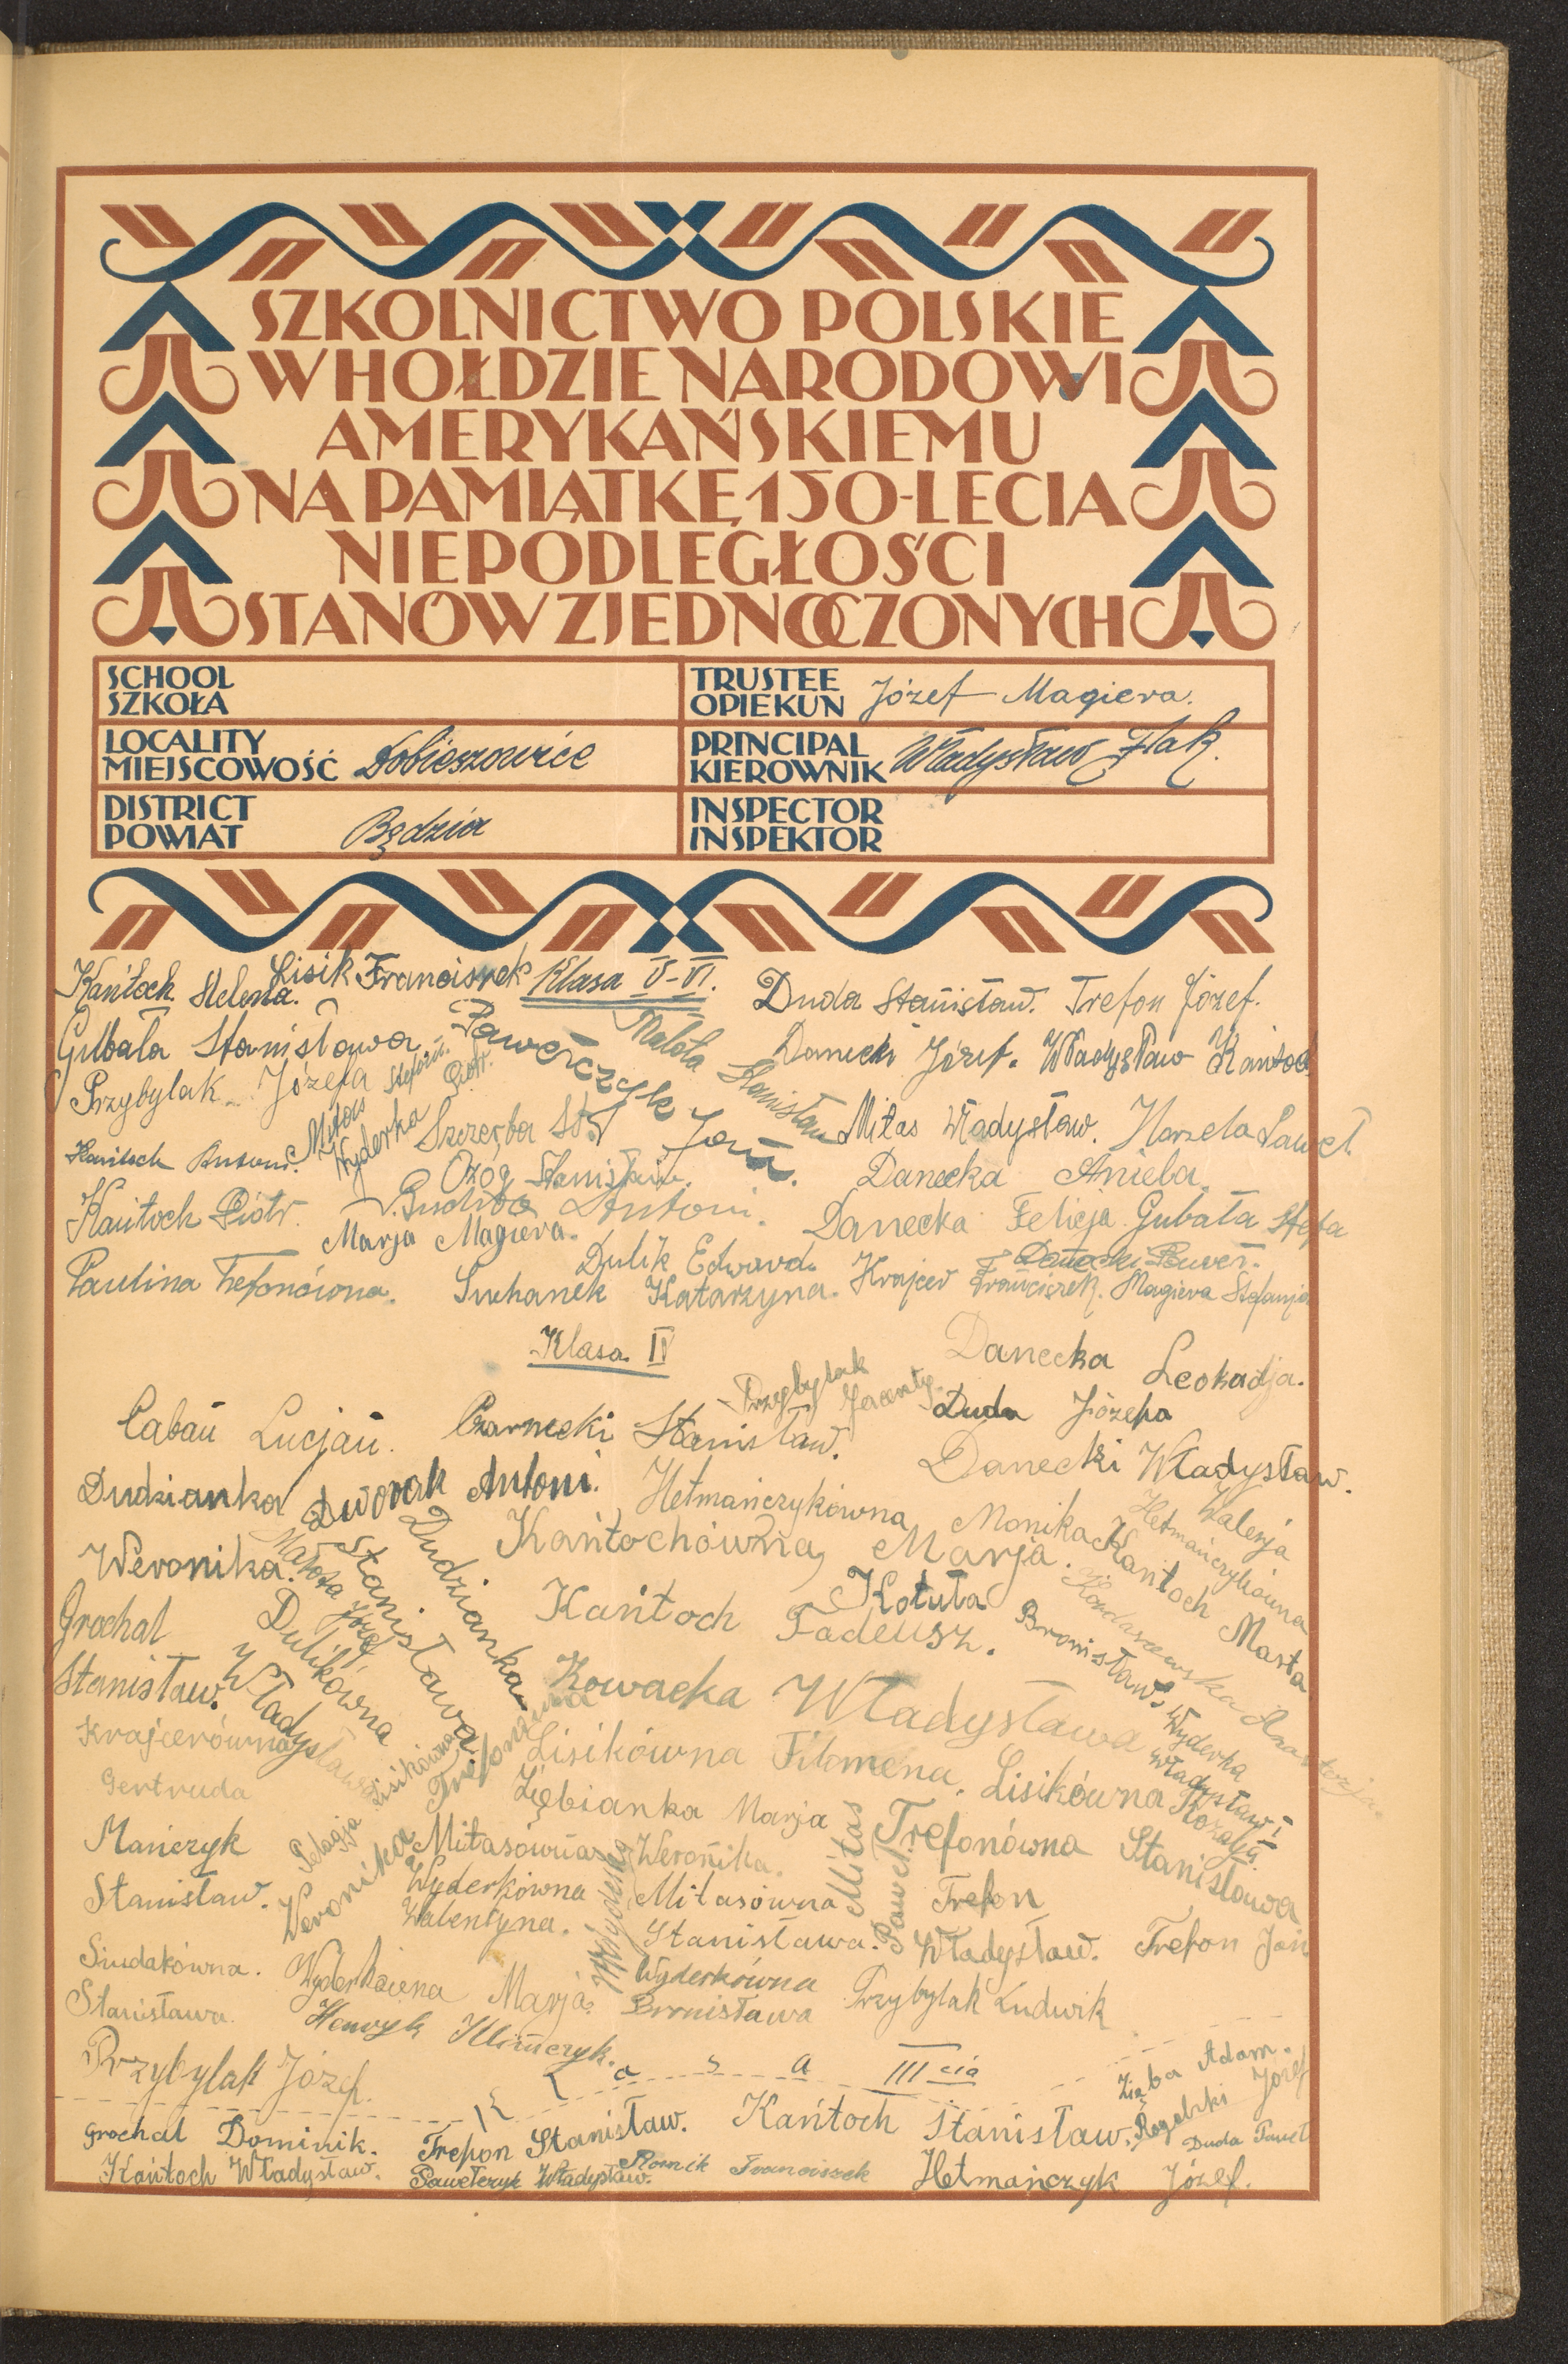 SZKOLNICTWO POLSKIE
W HOŁDZIE NARODOWI
AMERYKAŃSKIEMU
NA PAMIĄTKĘ 150-LECIA
NIEPODLEGŁOŚCI
STANÓW ZJEDNOCZONYCH
SCHOOL
SZKOŁA
TRUSTEE
OPIEKUN Józef Magiera.
LOCALITY
MIEJSCOWOŚĆ Dobieszowice
PRINCIPAL
KIEROWNIK Władysław Flak.
DISTRICT
POWIAT Będzin
INSPECTOR
INSPEKTOR
Kańtoch Helena.
Lisik Franciszek
Klasa V-VI.
Duda Stanisław. Trefon Józef.
Gubała Stanisława
Pawełczyk Jan.
Małota Stanisław
Danecki Józef. Władysław Kańtoch
Przybylak Józefa
Mitas Stefan.
Wyderka Piotr.
Szczerba St.
Mitas Władysław.
Paweł
Kańtoch Antoni.
Ożóg Stanisław.
Danecka Aniela.
Kańtoch Piotr.
Antoni.
Danecka Felicja Gubała Stefa
Marja Magiera.
Dulik Edward.
Danecki Paweł.
Paulina Trefonówna.
Suchanek Katarzyna. Krajcer Franciszek. Magiera Stefanja
Klasa IV
Danecka Leokadja.
Przybylak
Duda Józefa
Caban Lucjan. Czarnecki Stanisław.
Danecki Władysław.
Dudzianka
Weronika.
Dworak Antoni.
Hetmańczykówna Monika
Hetmańczykówna Walerja
Kańtochówna Marja.
Kańtoch Marta
Małota Józef
Dudzianka Stanisława.
Kańtoch Tadeusz.
Kotuła Bronisław.
Grochal
Stanisław.
Dulikówna Władysława
Kowacka Władysława
Wyderka Władysław I
Krajcerówna
Gertruda
Pelagja Lisikówna
Trefonówna Weronika
Lisikówna Filomena. Lisikówna Rozalja.
Ziębianka Marja
Mańczyk
Stanisław.
Mitasówna Weronika.
Mitas Paweł
Trefonówna Stanisława
Wyderkówna
Walentyna.
Wyderka
Mitasówna
Stanisława.
Trefon
Władysław. Trefon Jan
Siudakówna.
Stanisława.
Wyderkówna Marja.
Wyderkówna
Bronisława
Przybylak Ludwik
Henryk Klimczyk.
Przybylak Józef.
Klasa III cia
Zięba Adam.
Józef
Grochal Dominik.
Trefon Stanisław. Kańtoch Stanisław.
Duda Paweł
Kańtoch Władysław.
Pawełczyk Władysław.
Franciszek
Hetmańczyk Józef.